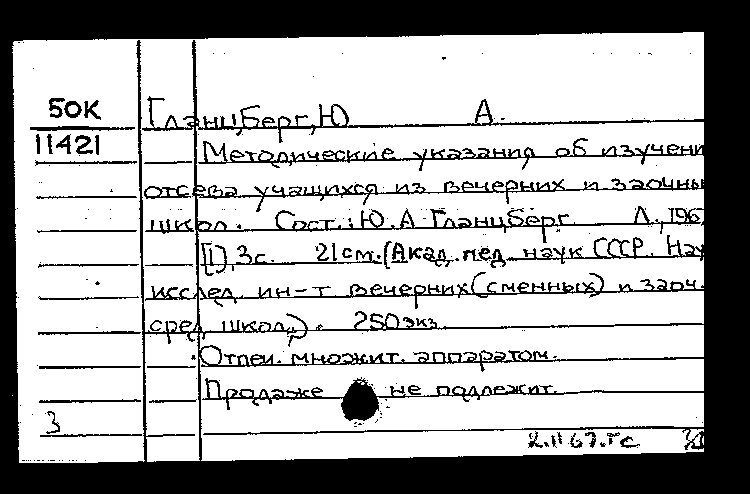 50К Гланцберг, Ю А.
11421
Методические указания об изучени
отсева учащихся из вечерних и заочны
школ. Сост.: Ю.А Гланцберг Л., 196
[I], 3с. 21 см. (Акад. пед. наук СССР. Нау
исслед. ин-т вечерних (сменных) и заоч.
сред школ,,). 250 экз.
Отпеч. множит. аппаратом.
Продаже не подлежит.
3
2.II 67.